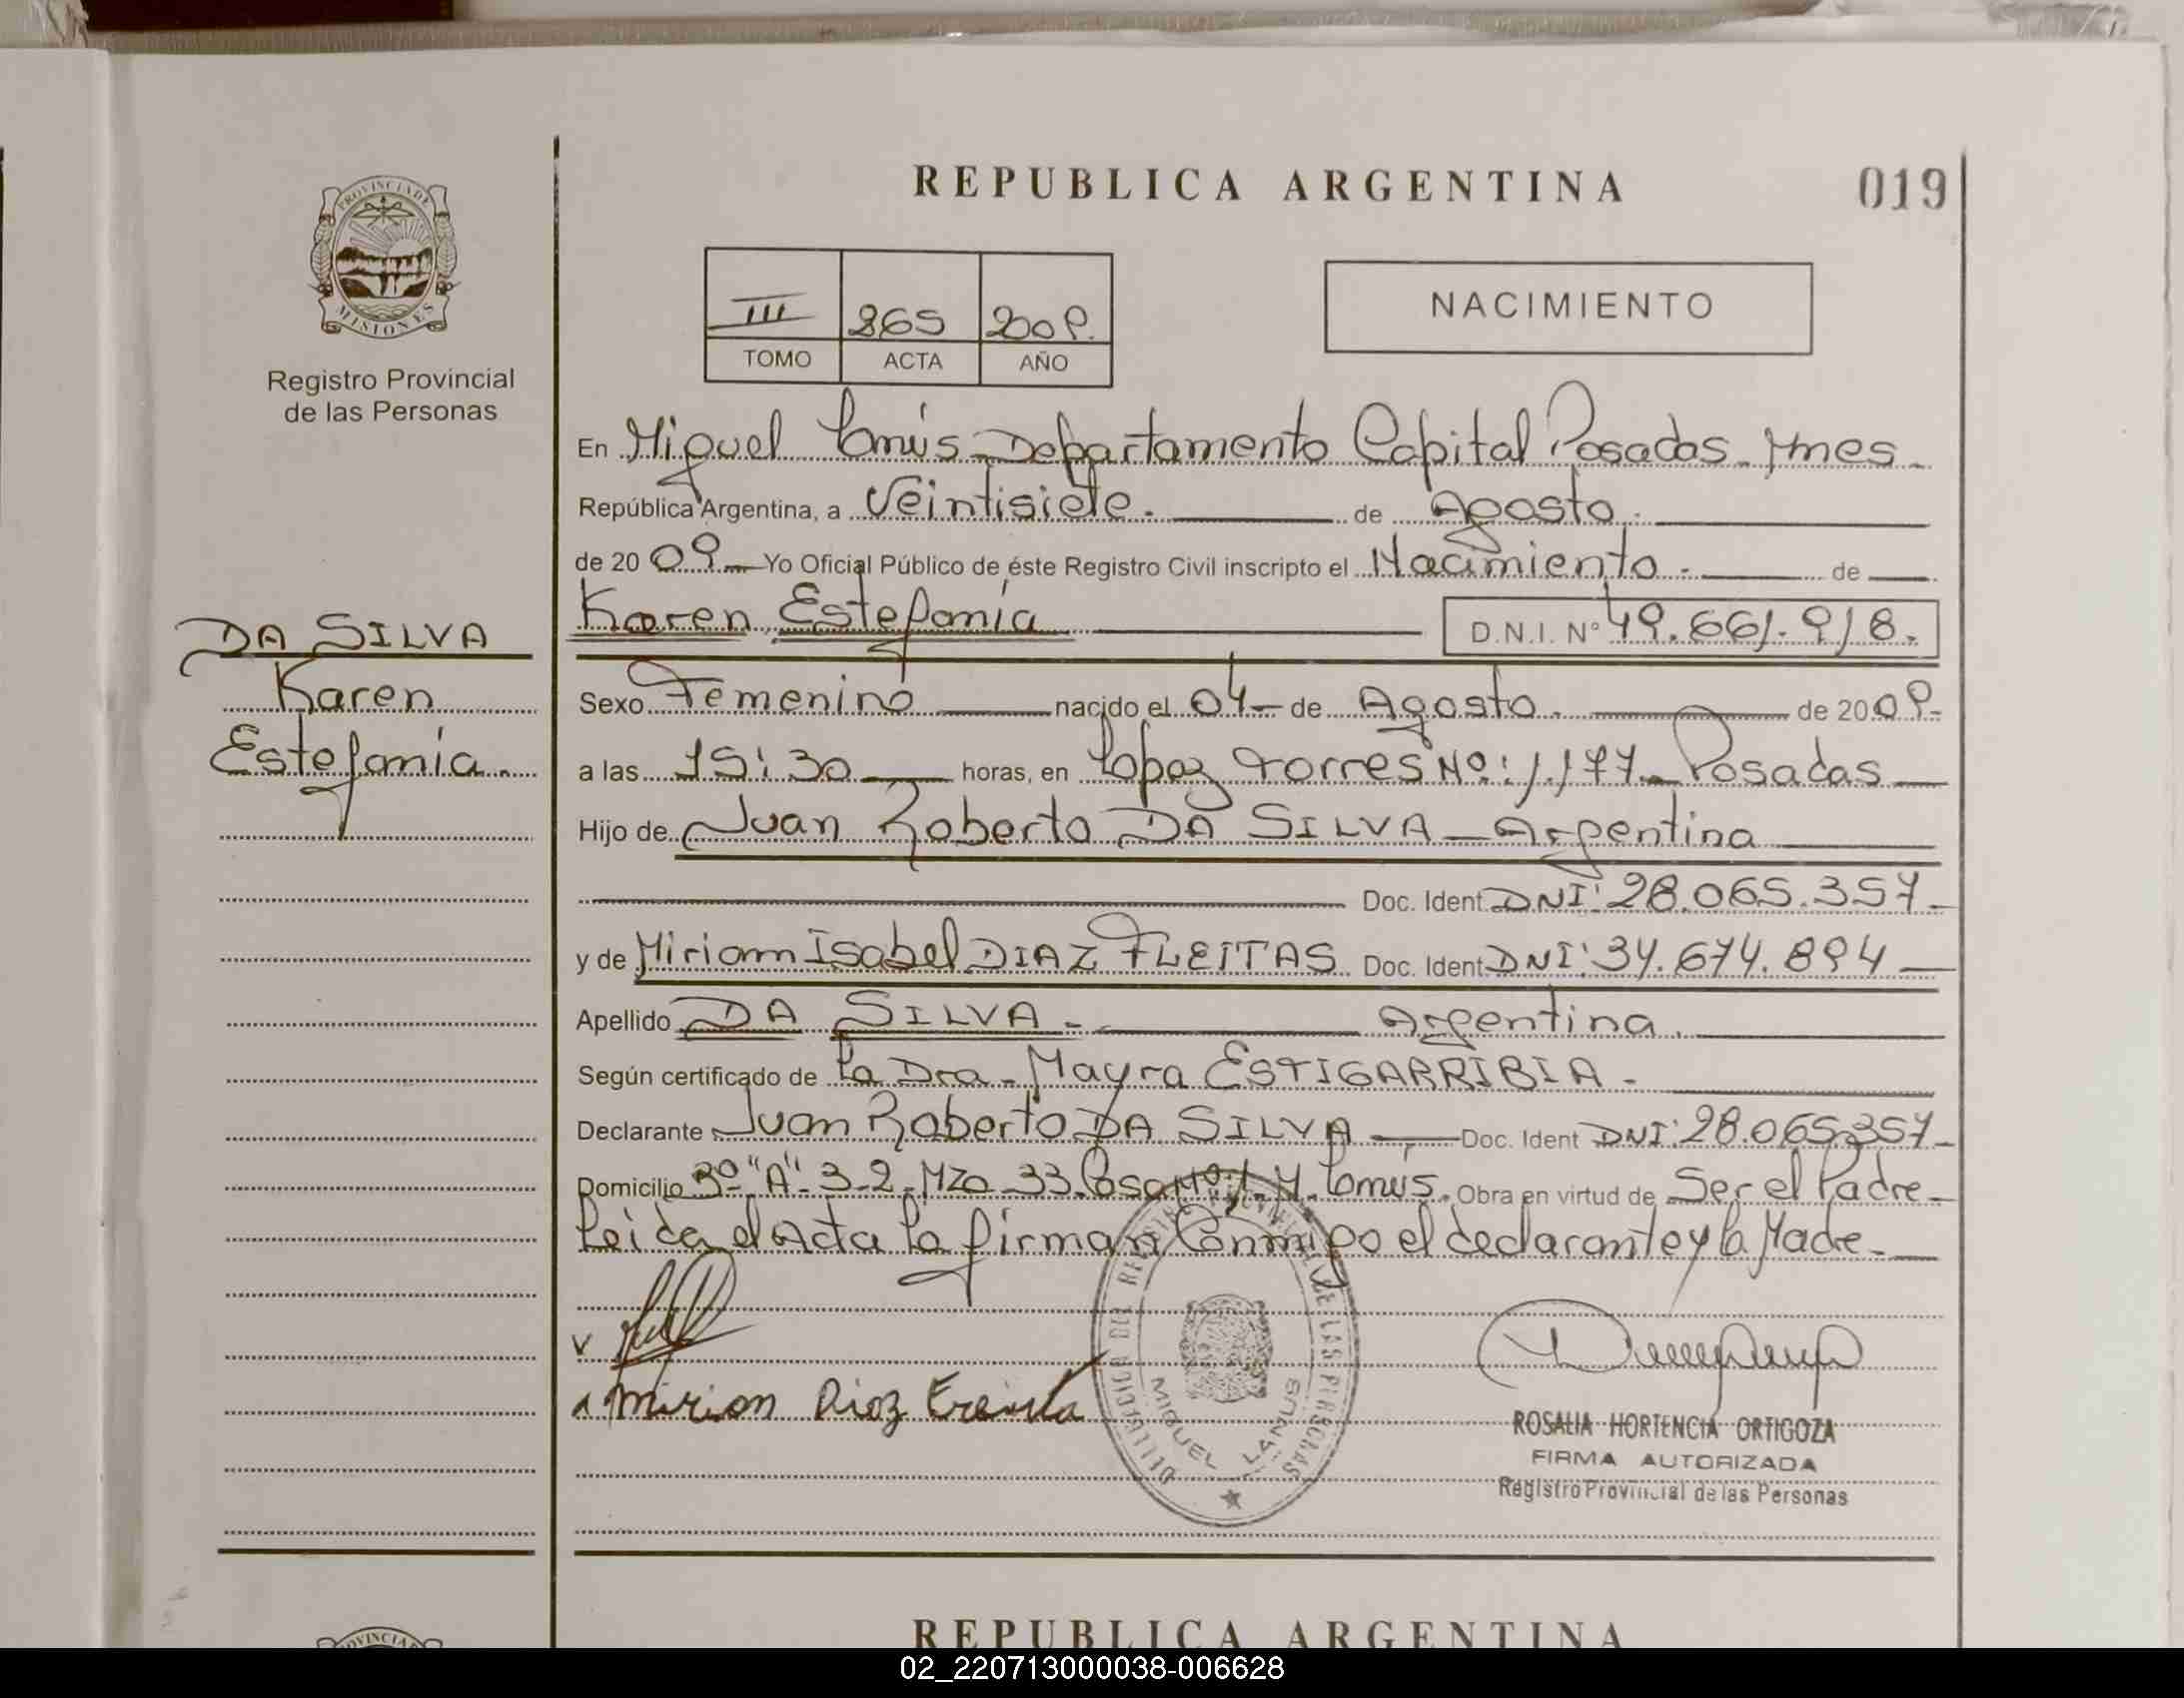 REPUBLICA ARGENTINA
019
PROVINCIA DE
MISIONES
Registro Provincial
de las Personas
III 865 2009.
TOMO ACTA AÑO
NACIMIENTO
En Miguel Lanús - Departamento Capital Posadas - Mnes -
República Argentina, a Veintisiete. de Agosto.
de 2009 - Yo Oficial Público de éste Registro Civil inscripto el Nacimiento - de
Karen Estefanía D.N.I. Nº 49.661.918.
DA SILVA
Karen
Estefanía.
Sexo Femenino nacido el 04 - de Agosto. de 2009-
a las 15:30 horas, en Lopez Torres Nº: 1.177 - Posadas
Hijo de Juan Roberto DA SILVA - Argentina
Doc. Ident DNI: 28.065.357-
y de Miriam Isabel DIAZ FLEITAS Doc. Ident DNI: 34.674.894
Apellido DA SILVA - Argentina.
Según certificado de La Dra - Mayra ESTIGARRIBIA -
Declarante Juan Roberto DA SILVA Doc. Ident DNI: 28.065.357-
Domicilio 3º "A" - 3-2 - Mza - 33. M. Lanús. Obra en virtud de Ser el Padre -
Leida el Acta La firman Conmigo el declarante y la Madre -
DELEGACION DEL REGISTRO PROVINCIAL DE LAS PERSONAS
MIGUEL LANUS
ROSALIA HORTENCIA ORTIGOZA
FIRMA AUTORIZADA
Registro Provincial de las Personas
REPUBLICA ARGENTINA
02_220713000038-006628